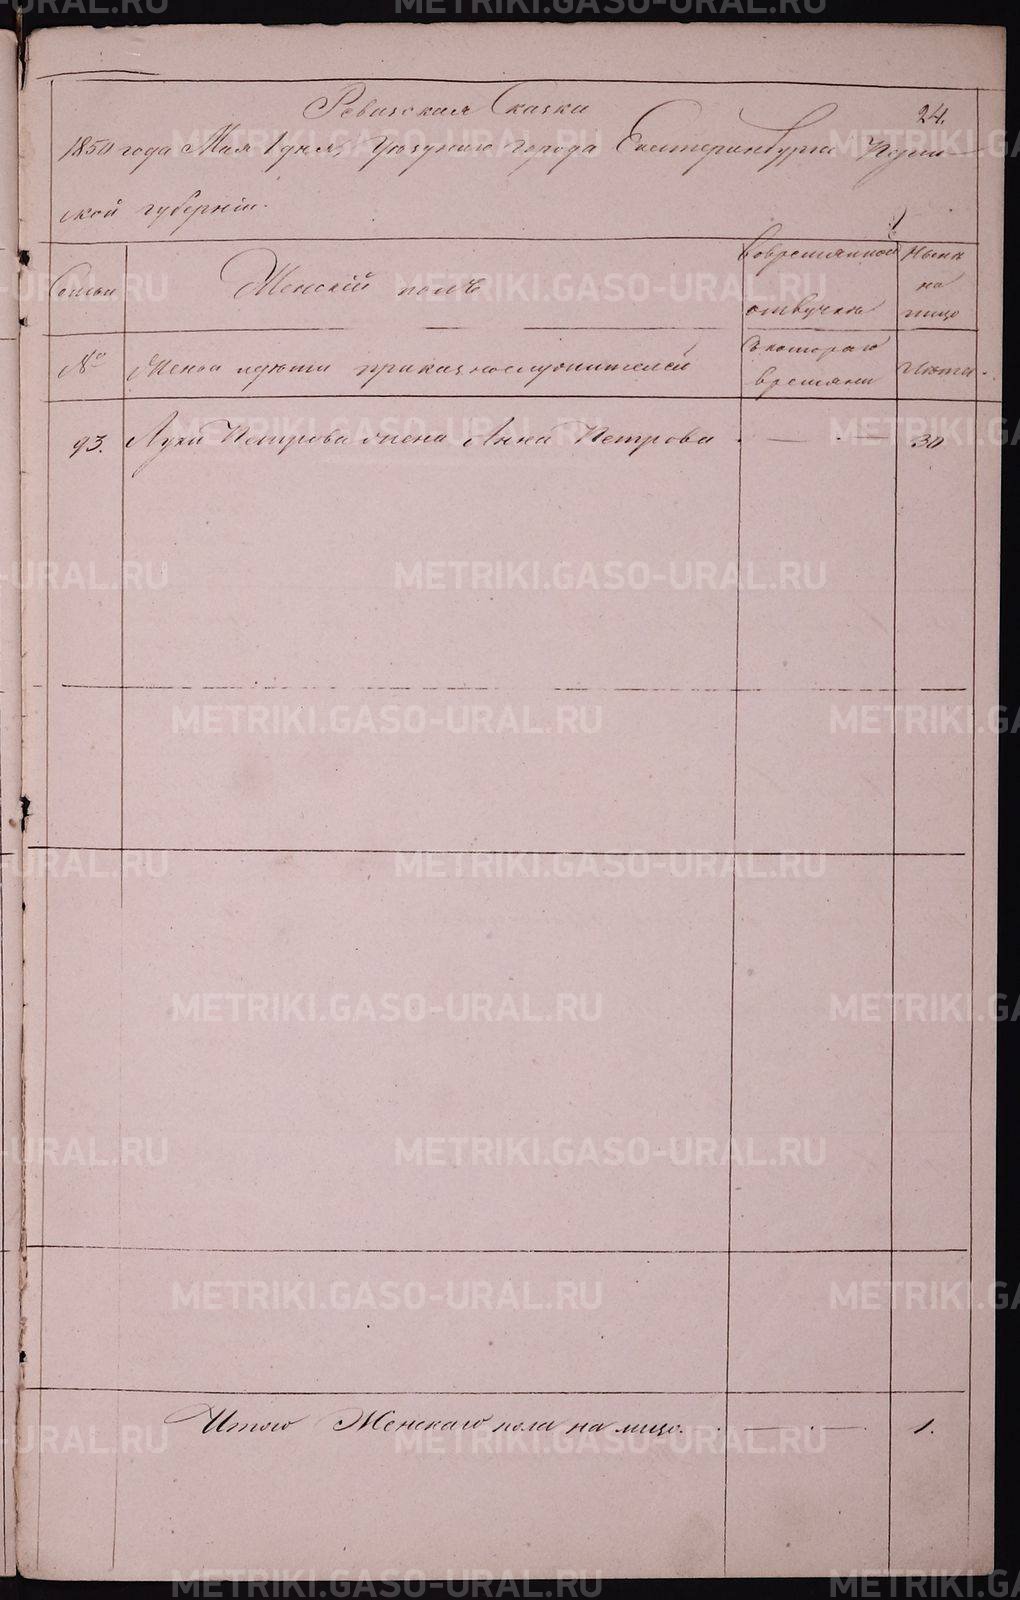 Ревизская Сказка
24.
1850 года Мая 1 дня, Уезднаго города Екатеринбурга Перм-
ской губерніи.
Семьи
Женскій полъ
Вовременной отлучкѣ
Нынѣ на лицо
№
Жены и дѣти приказнослужителей
Съ котораго времяни
Лѣта.
93.
Луки Петрова жена Анна Петрова
30
Итого Женскаго пола на лицо.
1.
METRIKI.GASO-URAL.RU